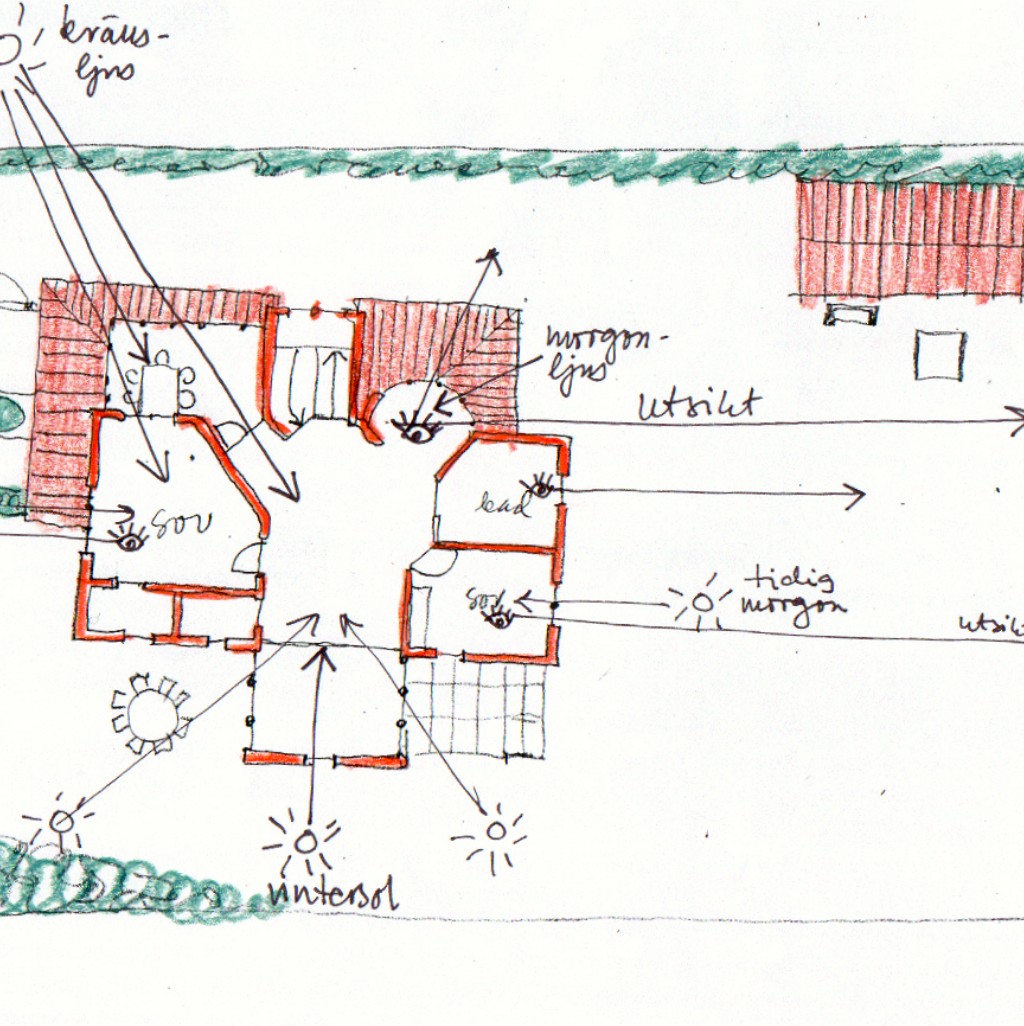 kväus-
ljus
morgon-
ljus
utsikt
sov
bad
sov
tidig
morgon
utsikt
vintersol